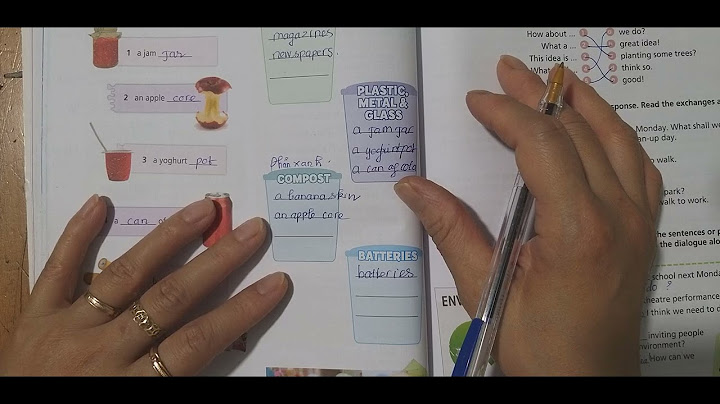 1 a jam jar
2 an apple core
3 a yoghurt pot
a can of
magazines
newspapers.
PLASTIC,
METAL &
GLASS
a jam jar
a can of cola
phân xanh.
COMPOST
a banana skin
an apple core
BATTERIES
batteries
How about ...
What a ...
This idea is ...
we do?
great idea!
planting some trees?
think so.
good!
sponse. Read the exchanges a
Monday. What shall we
an-up day.
o walk.
park?
walk to work.
the sentences or p
the dialogue alo
school next Monda
do ?
heatre performance
I think we need to c
inviting people
nvironment?
How can we
ENV